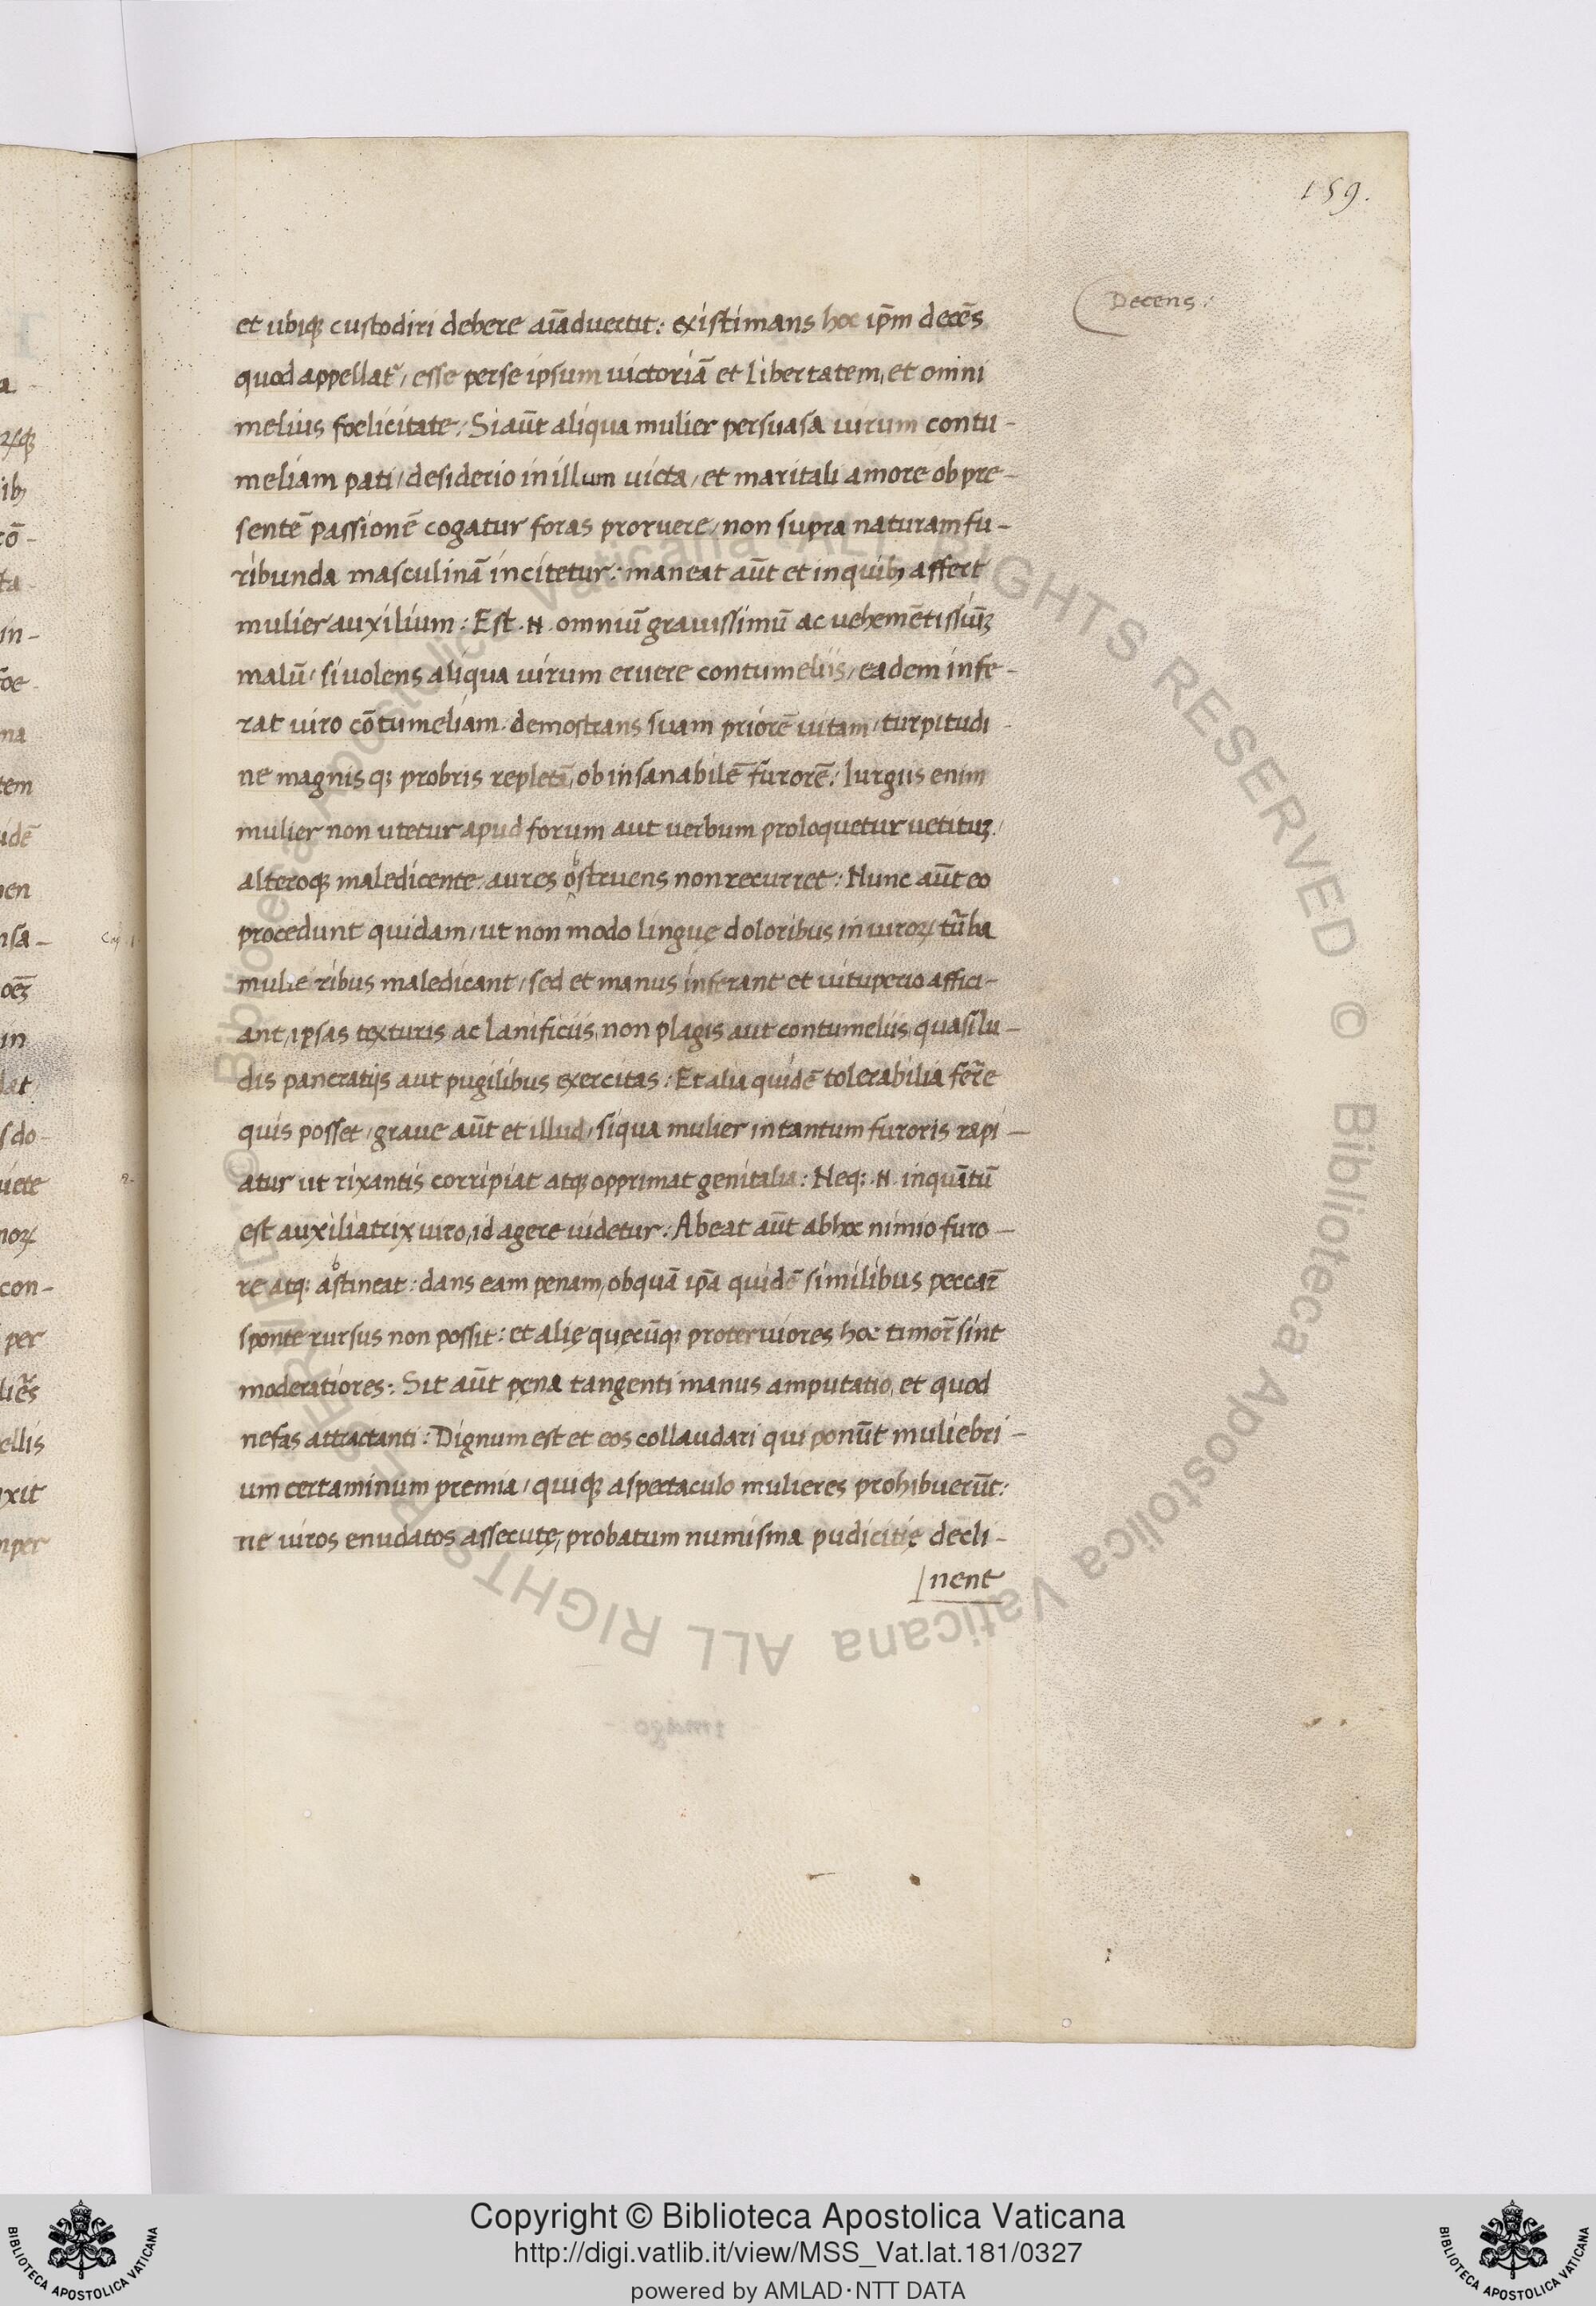 159.
Decens:
et ubiq custodiri debere aīaduertit: existimans hoc ip̄m decēs
quod appellat̄, esse perse ipsum uictoriā et libertatem, et omni
melius foelicitate, Si aūt aliqua mulier persuasa uirum contu-
meliam pati, desiderio in illum uicta, et maritali amore ob pre-
sentē passionē cogatur foras proruere, non supra naturam fu-
ribunda masculinā incitetur: maneat aūt et in quib; affert
mulier auxilium: Est .N. omniū grauissimū ac uehemētissiūꝫ
malū, si uolens aliqua uirum eruere contumeliis, eadem infe-
rat uiro cōtumeliam, demostrans suam priorē uitam, turpitudi-
ne magnisq; probris repletā, ob insanabilē furorē: Iurgiis enim
mulier non utetur apud forum aut uerbum proloquetur uetituꝫ,
alteroq maledicente, aures obstruens non recurret: Nunc aūt eo
procedunt quidam, ut non modo linguę doloribus in uiroꝝ tūba
mulieribus maledicant, sed et manus inferant et uituperio affici-
ant, ipsas texturis ac lanificiis, non plagis aut contumeliis, quasi lu-
dis pancratijs aut pugilibus exercitas: Et alia quidē tolerabilia fer̄e
quis posset, graue aūt et illud, siqua mulier in tantum furoris rapi-
atur ut rixantis corripiat atq opprimat genitalia: Neq; .N. inquātū
est auxiliatrix uiro, id agere uidetur: Abeat aūt ab hoc nimio furo-
re atq; abstineat: dans eam penam, ob quā ip̄a quidē similibus peccar̄
sponte rursus non possit: et alię quęcūq; proteruiores hoc timor̄ sint
moderatiores: Sit aūt pęna tangenti manus amputatio, et quod
nefas attractanti: Dignum est et eos collaudari qui ponūt muliebri-
um certaminum premia, quiq a spectaculo mulieres prohibuerūt:
ne uiros enudatos assecutę, probatum numisma pudicitię decli-
nent
Copyright © Biblioteca Apostolica Vaticana
http://digi.vatlib.it/view/MSS_Vat.lat.181/0327
powered by AMLAD·NTT DATA